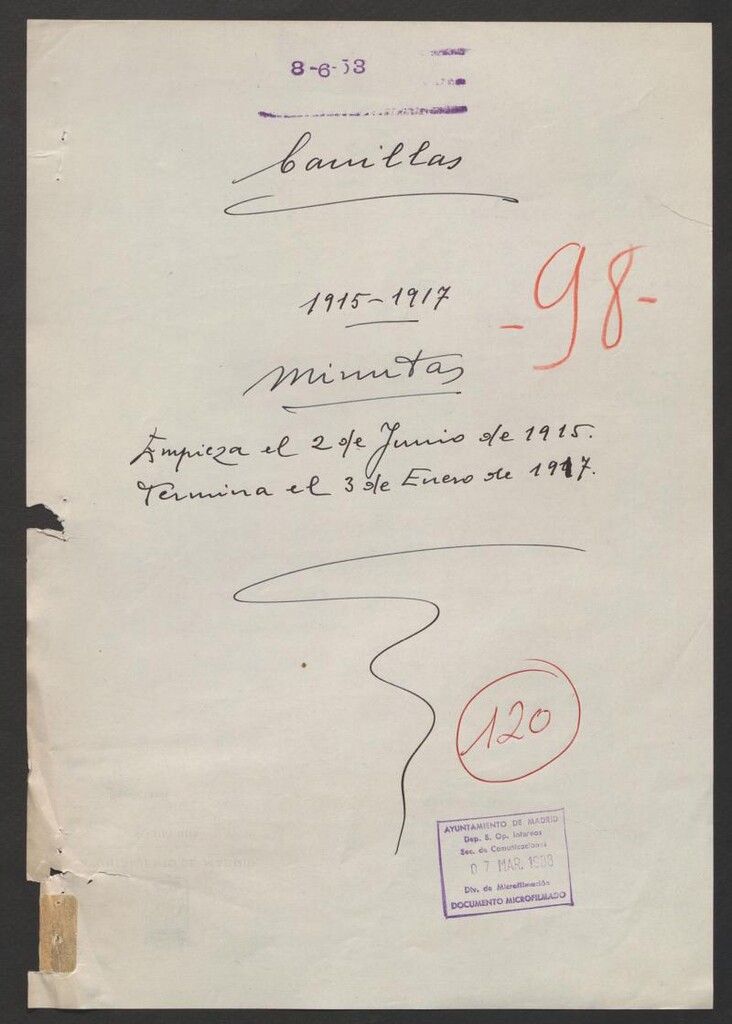 8-6-53
Canillas
1915-1917
-98-
Minutas
Empieza el 2 de Junio de 1915.
Termina el 3 de Enero de 1917.
120
AYUNTAMIENTO DE MADRID
Dep. S. Op. Internos
Sec. de Comunicaciones
0 7 MAR. 1988
Div. de Microfilmación
DOCUMENTO MICROFILMADO